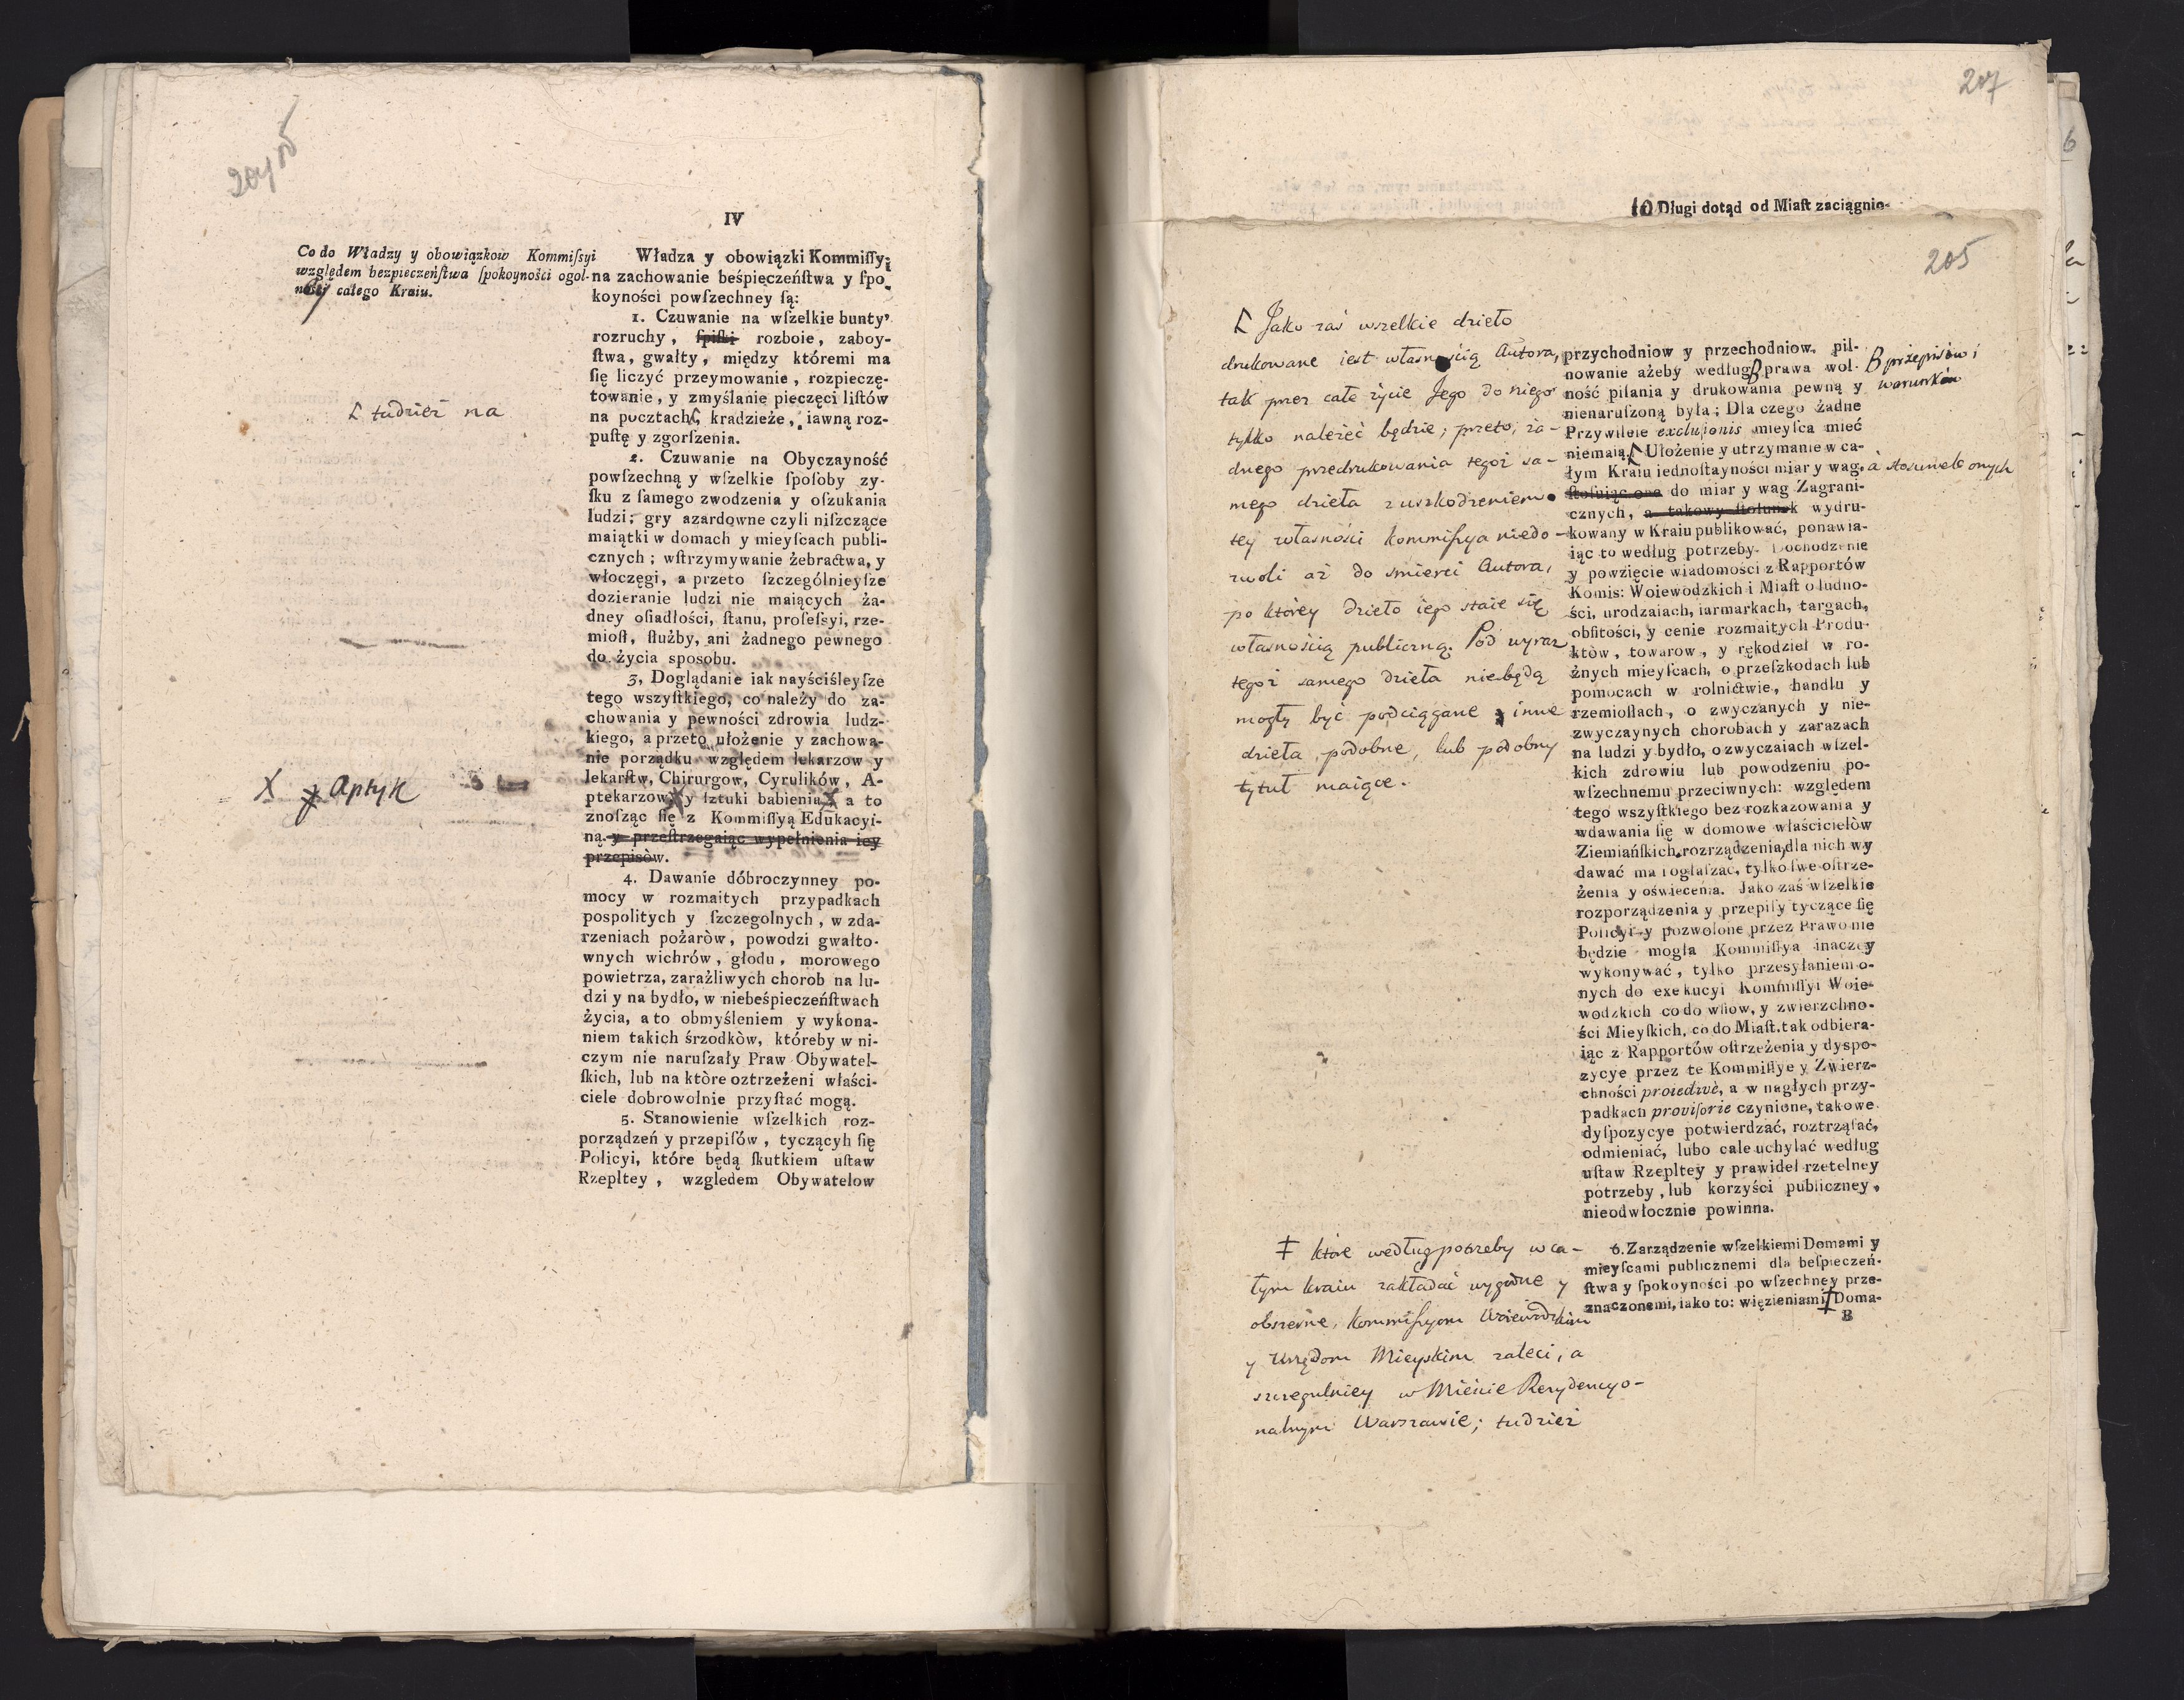 IV
Co do Władzy y obowiązkow Kommiſsyi
względem bezpieczeńſtwa ſpokoyności ogol-
ney całego Kraiu.
Ꞁ tudzież na
X y Aptyk
Władza y obowiązki Kommiſſyi
na zachowanie beśpieczeńſtwa y ſpo-
koyności powſzechney ſą:
1. Czuwanie na wſzelkie bunty,
rozruchy, ſpiſki rozboie, zaboy-
ſtwa, gwałty, między któremi ma
ſię liczyć przeymowanie, rozpieczę-
towanie, y zmyślanie pieczęci liſtów
na pocztach, kradzieże, iawną roz-
puſtę y zgorſzenia.
2. Czuwanie na Obyczayność
powſzechną y wſzelkie ſpoſoby zy-
ſku z ſamego zwodzenia y oſzukania
ludzi; gry azardowne czyli niſzczące
maiątki w domach y mieyſcach publi-
cznych; wſtrzymywanie żebractwa, y
włoczęgi, a przeto ſzczególnieyſze
dozieranie ludzi nie maiących ża-
dney oſiadłości, ſtanu, profeſsyi, rze-
mioſł, ſłużby, ani żadnego pewnego
do życia sposobu.
3, Doglądanie iak nayściśleyſze
tego wszyſtkiego, co należy do za-
chowania y pewności zdrowia ludz-
kiego, a przeto ułożenie y zachowa-
nie porządku względem lekarzow y
lekarſtw, Chirurgow, Cyrulików, A-
ptekarzow, y ſztuki babienia, a to
znoſząc ſię z Kommiſſyą Edukacyi-
ną y przeſtrzegaiąc wypełnienia iey
przepisòw.
4. Dawanie dóbroczynney po-
mocy w rozmaitych przypadkach
pospolitych y ſzczegolnych, w zda-
rzeniach pożaròw, powodzi gwałto-
wnych wichrów, głodu, morowego
powietrza, zaraźliwych chorob na lu-
dzi y na bydło, w niebeśpieczeńſtwach
życia, a to obmyśleniem y wykona-
niem takich śrzodkòw, któreby w ni-
czym nie naruſzały Praw Obywatel-
ſkich, lub na któreoztrzeżeni właści-
ciele dobrowolnie przyſtać mogą.
5. Stanowienie wſzelkich roz-
porządzeń y przepiſów, tyczącyh ſię
Policyi, które będą ſkutkiem uſtaw
Rzepltey, względem Obywatelow
207
10 Długi dotąd od Miaſt zaciągnio-
205
Ꞁ Jako zaś wszelkie dzieło
drukowane iest własnością Autora,
tak przez całe życie Jego do niego
tylko należeć będzie; przeto, ża-
dnego przedrukowania tegoż sa-
mego dzieła z uszkodzeniem
tey własności Kommiſsya niedo-
zwoli aż do śmierci Autora,
po którey dzieło iego staie się
własnością publiczną. Pod wyraz
tegoż samego dzieła niebędą
mogły być podciągane inne
dzieła podobne, lub podobny
tytuł maiące.
przychodniow y przechodniow. pil-
nowanie ażeby według prawa wol-
ność piſania y drukowania pewną y
nienaruſzoną była; Dla czego żadne
Przywileie excluſionis mieyſca mieć
niemaią. Ułożenie y utrzymanie w ca-
łym Kraiu iednoſtayności miar y wag.
ſtoſuiąc one do miar y wag Zagrani-
cznych, a takowy ſtoſunek wydru-
kowany w Kraiu publikować, ponawia-
iąc to według potrzeby. Dochodzenie
y powzięcie wiadomości z Rapportów
Komis: Woiewodzkich i Miaſt o ludno-
ści, urodzaiach, iarmarkach, targach,
obfitości, y cenie rozmaitych Produ-
ktòw, towarow, y rękodzieł w ro-
żnych mieyſcach, o przeſzkodach lub
pomocach w rolnictwie, handlu y
rzemioſłach, o zwyczanych y nie-
zwyczaynych chorobach y zarazach
na ludzi y bydło, o zwyczaiach wſzel-
kich zdrowiu lub powodzeniu po-
wſzechnemu przeciwnych: względem
tego wszyſtkiego bez rozkazowania y
wdawania ſię w domowe właścicielòw
Ziemiańſkich rozrządzenia, dla nich wy
dawać ma i ogłaſzać, tylko ſwe oſtrze-
żenia y oświecenia. Jako zaś wſzelkie
rozporządzenia y przepiſy tyczące ſię
Policyi y pozwolone przez Prawo nie
będzie mogła Kommiſſya inaczey
wykonywać, tylko przesyłaniem o-
nych do exekucyi Kommiſſyi Woie-
wodzkich co do wſiow, y zwierzchno-
ści Mieyſkich, co do Miaſt. tak odbiera-
iąc z Rapportów oſtrzeżenia y dyspo-
zycye przez te Kommiſſye y Zwierz-
chności proiective, a w nagłych przy-
padkach proviſorie czynione, takowe
dyſpozycye potwierdzać, roztrząſać,
odmieniać, lubo cale uchylać według
uſtaw Rzepltey y prawideł rzetelney
potrzeby, lub korzyści publiczney,
nieodwłocznie powinna.
B przepisòw i
warunków
a stosunek onych
‡ które według potrzeby w ca-
łym kraiu zakładać wygodne y
obszerne, Kommiſsyom Woiewodzkim
y Urzędom Mieyskim zaleci, a
szczegulniey w Mieście Rezydencyo-
nalnym Warszawie; tudzież
6. Zarządzenie wſzelkiemi Domami y
mieyſcami publicznemi dla beſpieczeń-
ſtwa y ſpokoyności po wſzechney prze-
znaczonemi, iako to: więzieniami ‡ Doma-
B